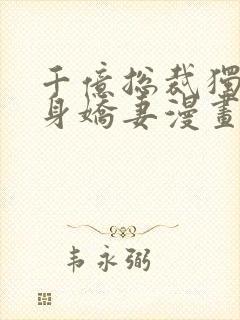 千億总裁獨
身嬌妻漫畫
韦永弼